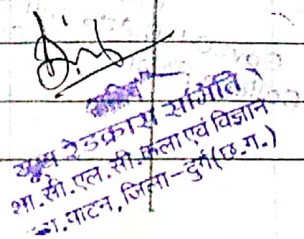 यूथ रेडक्रास समिति
शा.सी.एल.सी.कला एवं विज्ञान
पाटन, जिला-दुर्ग(छ.ग.)